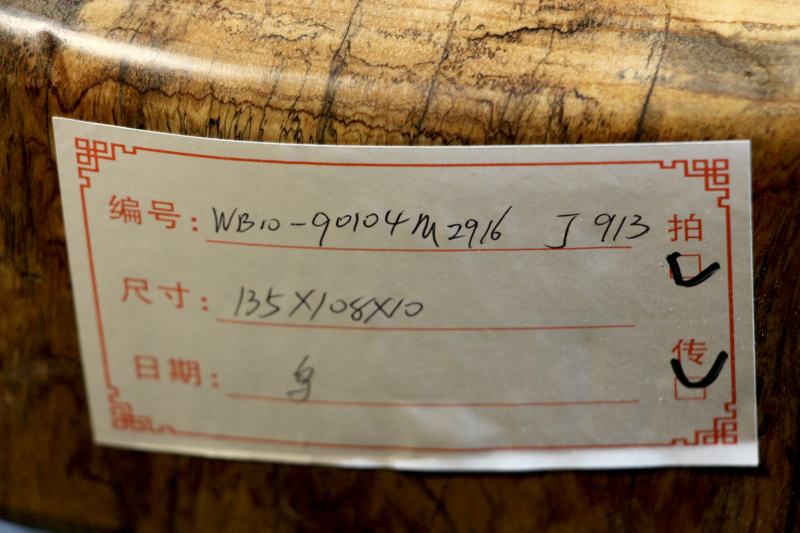 编号: WB10-90104M2916 J 913 拍
尺寸: 135X108X10
日期: 传